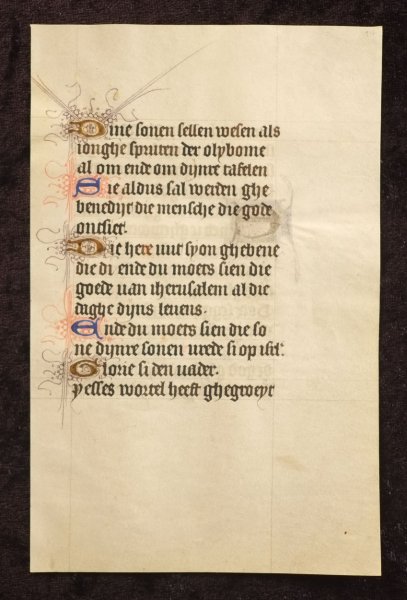 Dine sonen sellen wesen als
ionghe spruten der olybome
al om ende om dynre tafelen
Sie aldus sal werden ghe
benedijt die mensche die gode
ontsiet.
Die here uut syon ghebene
die di ende du moets sien die
goede van iherusalem al die
daghe dijns levens.
Ende du moets sien die so
ne dynre sonen vrede si op isrl.
Glorie si den vader.
yesses wortel heeft ghegroeyt